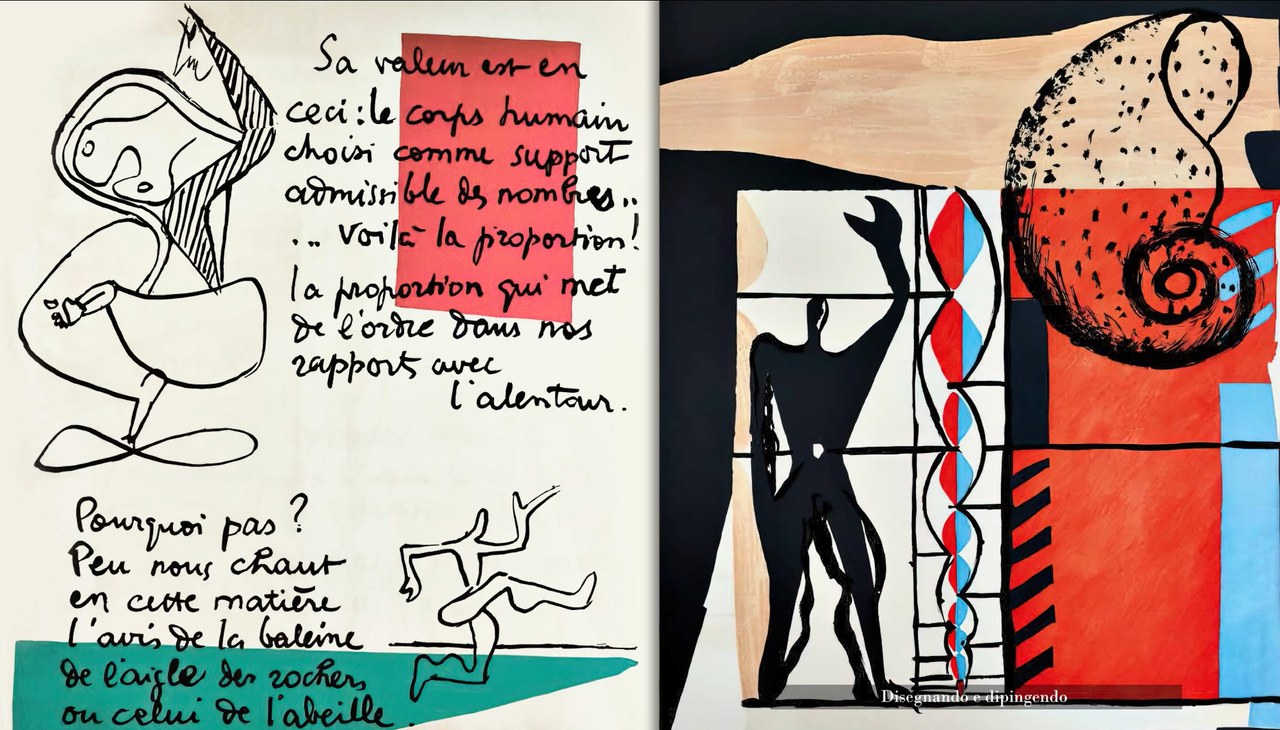 Sa valeur est en
ceci : le corps humain
choisi comme support
admissible des nombres..
... Voilà la proportion!
la proportion qui met
de l'ordre dans nos
rapports avec
l'alentour.
Pourquoi pas ?
Peu nous chaut
en cette matière
l'avis de la baleine
de l'aigle des rochers
ou celui de l'abeille.
Disegnando e dipingendo